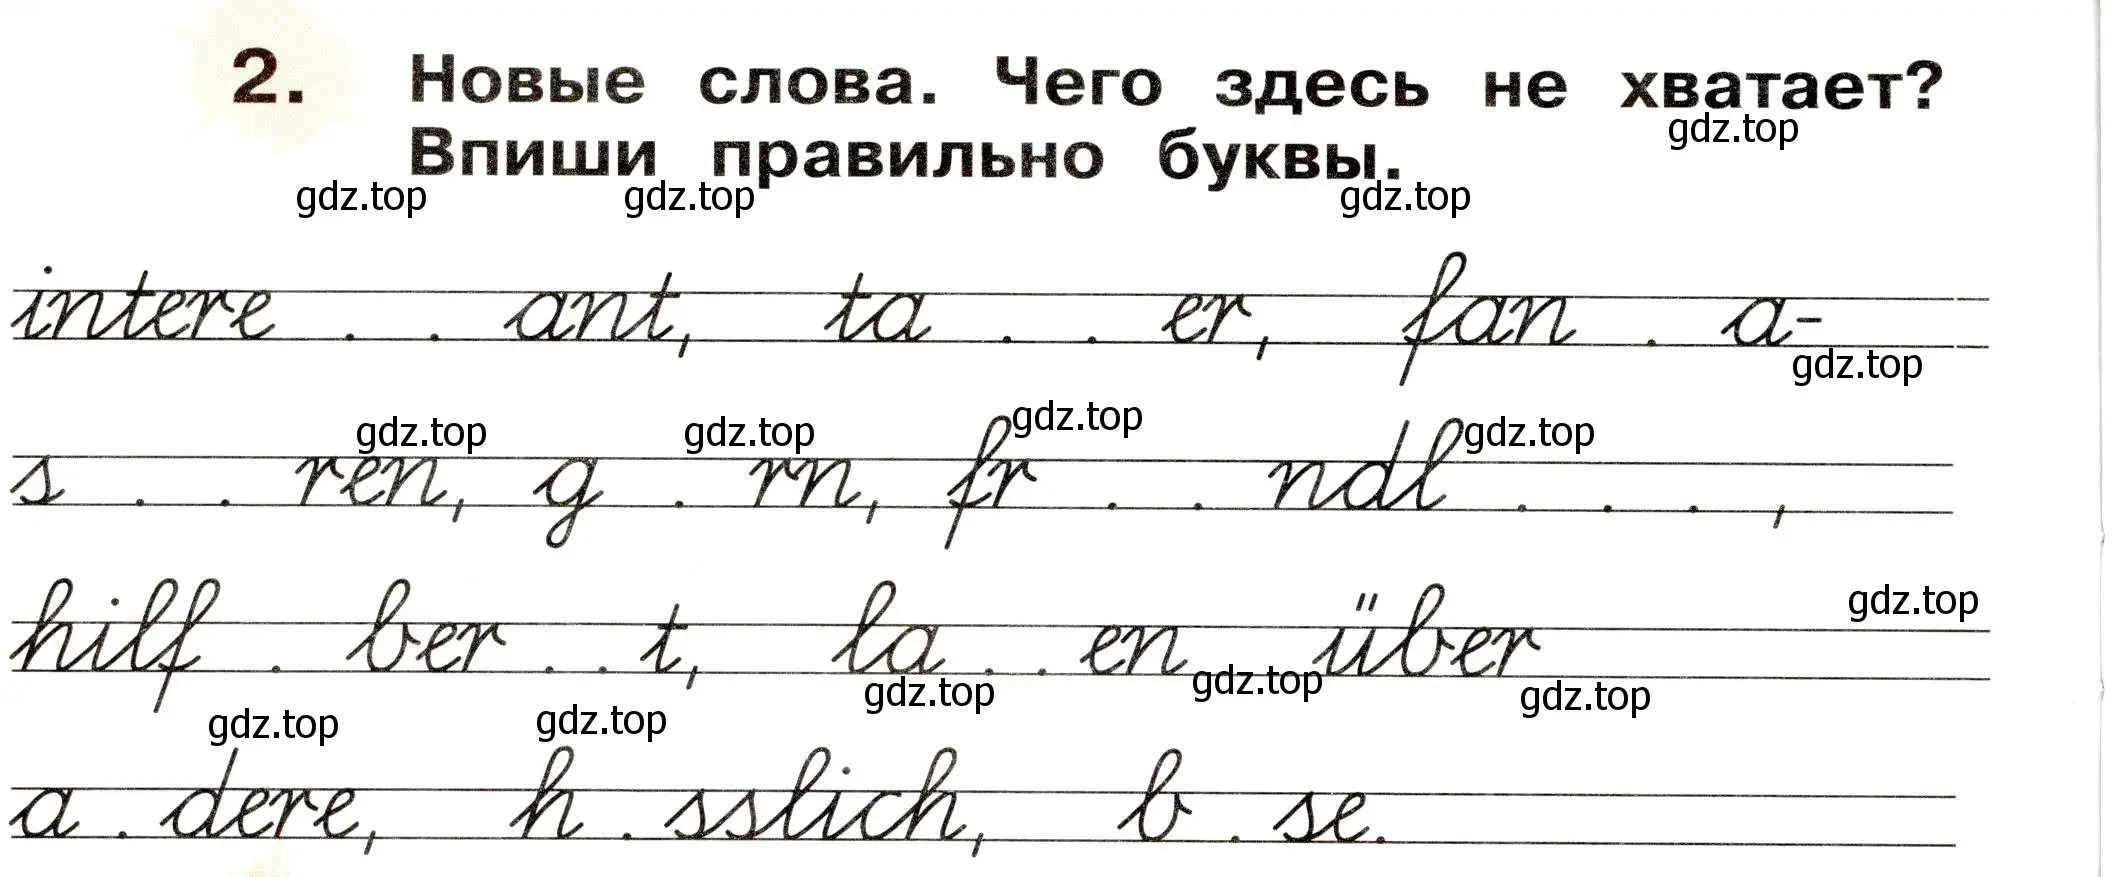 2. Новые слова. Чего здесь не хватает?
gdz.top
Впиши правильно буквы.
gdz.top gdz.top gdz.top
intere . . ant, ta . . er, fan . a-
gdz.top
gdz.top gdz.top gdz.top gdz.top
s . . ren, g . rn, fr . . ndl . . . ,
gdz.top
hilf . ber . . t, la . . en über
gdz.top gdz.top gdz.top
gdz.top gdz.top
a . dere, h . sslich, b . se.